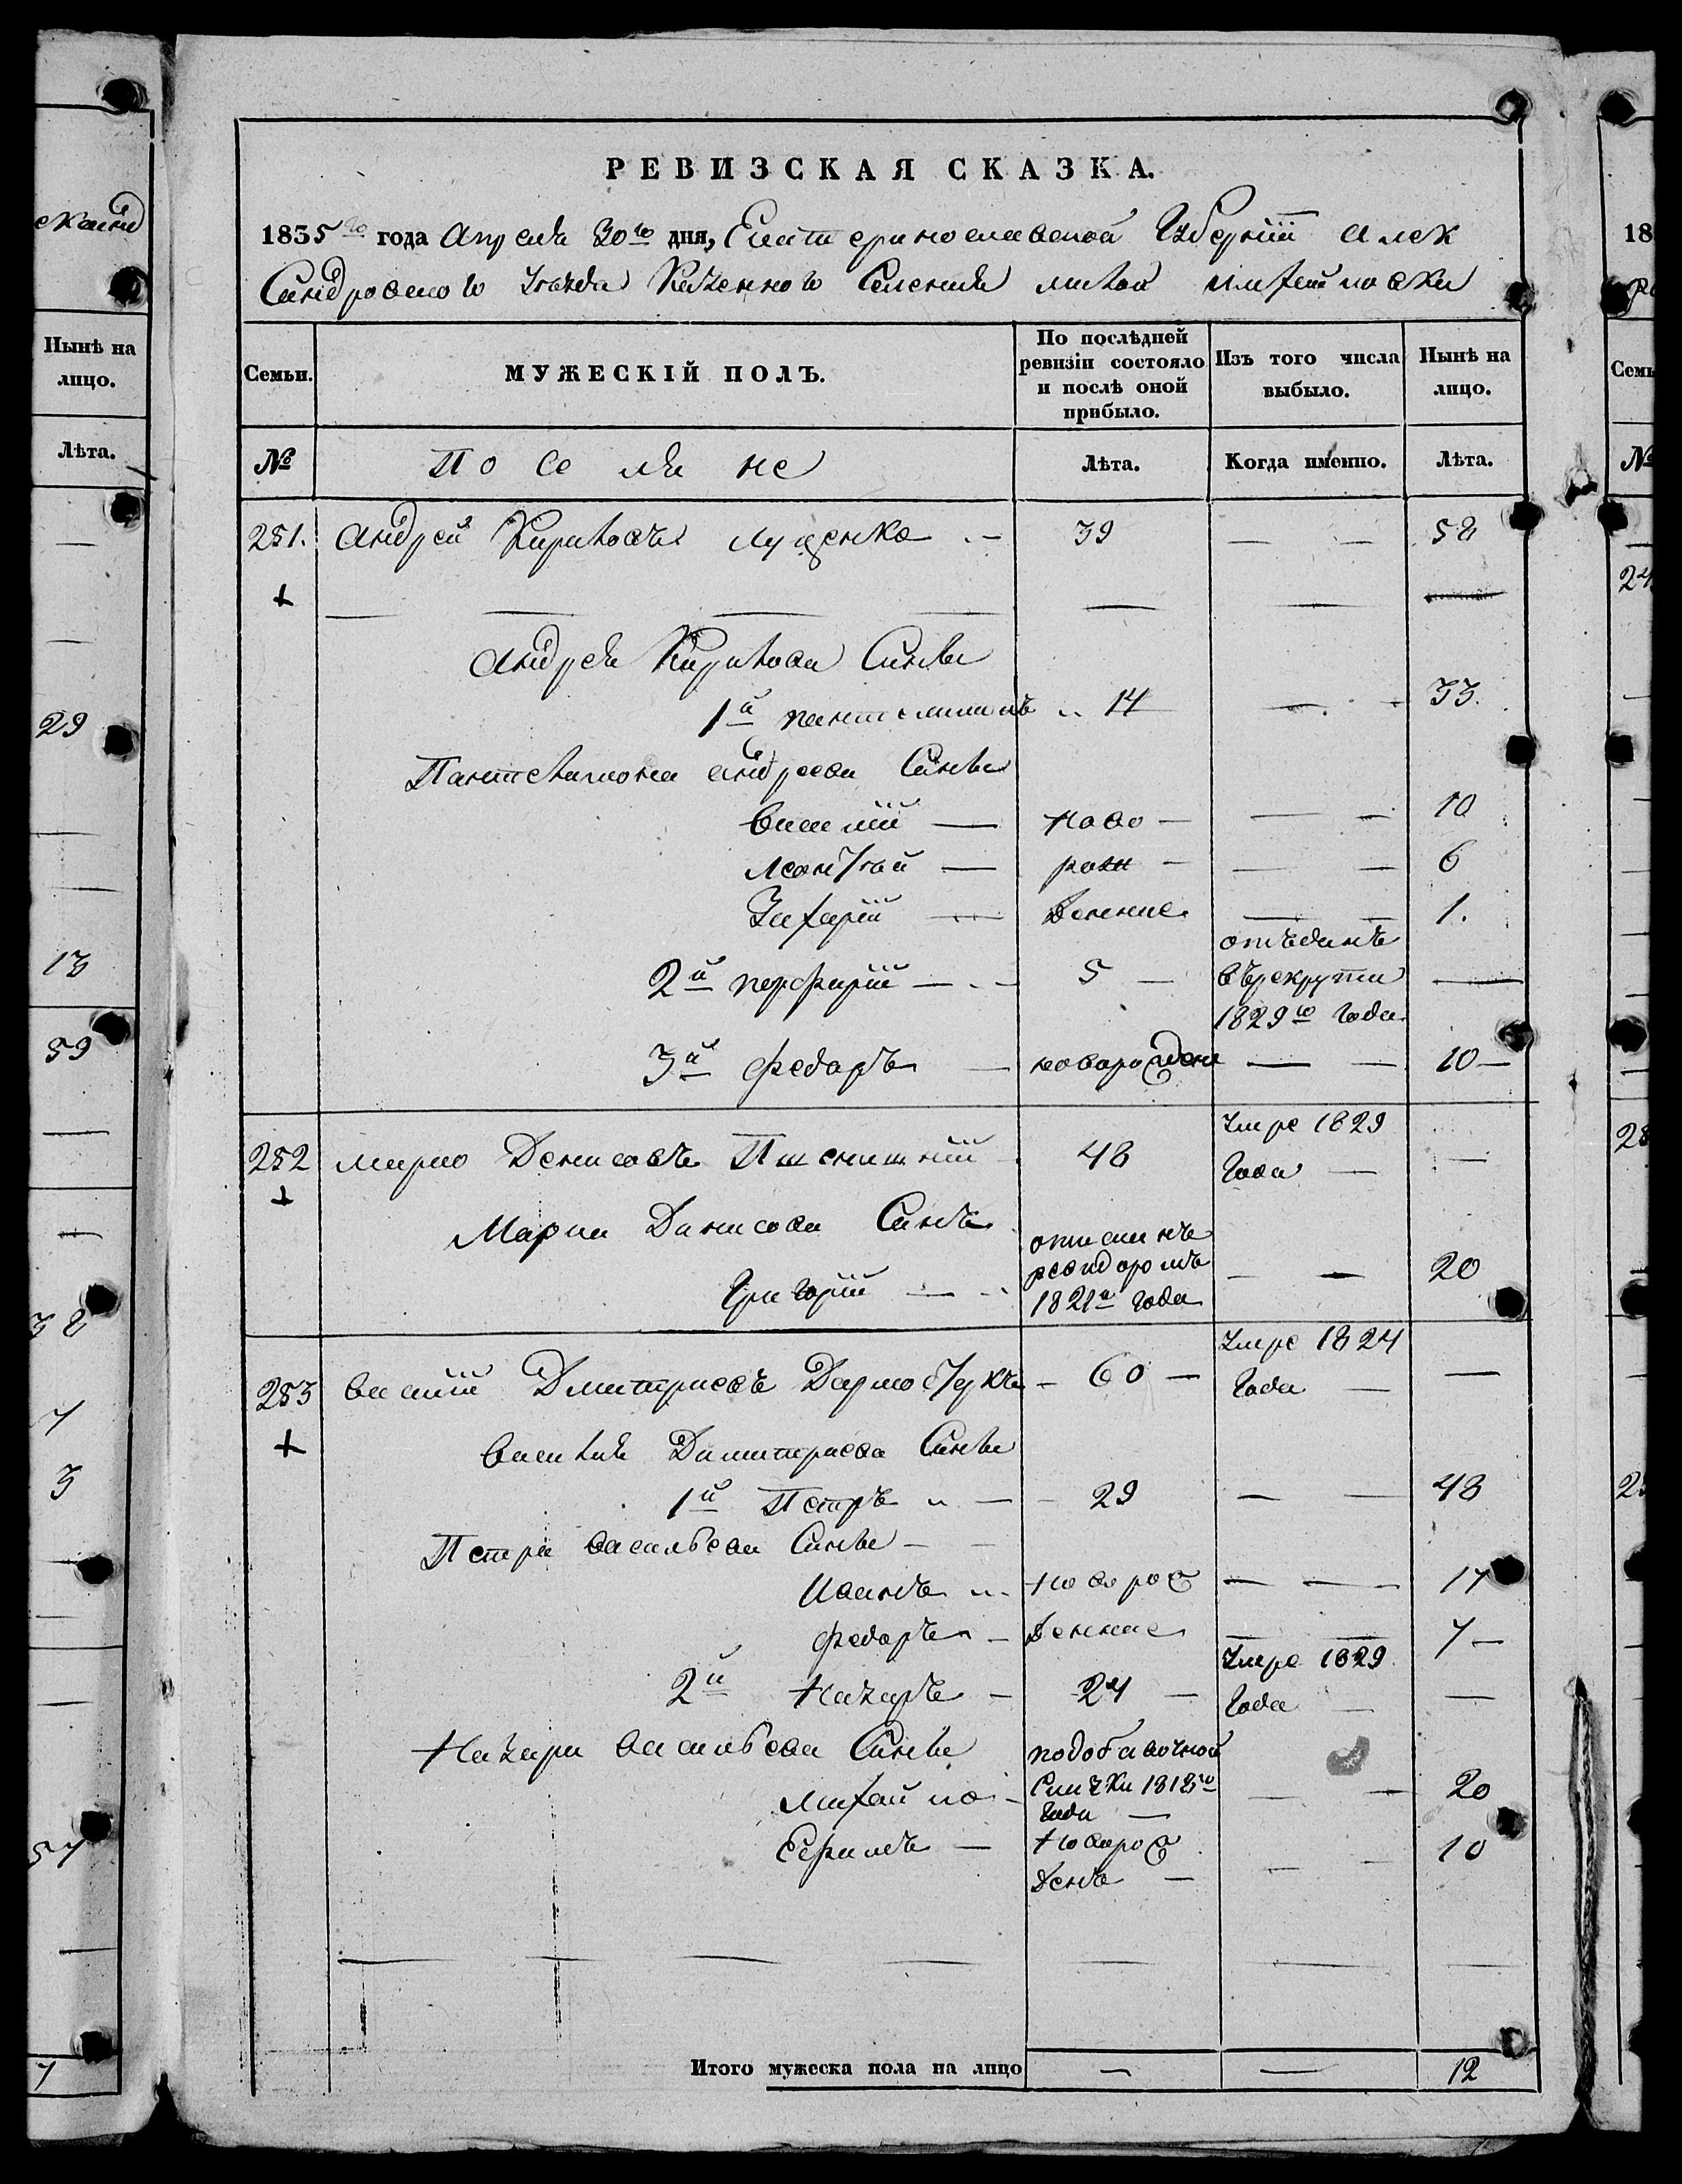 скаго
Нынѣ на
лицо.
Лѣта.
29
13
59
32
7
3
57
7
РЕВИЗСКАЯ СКАЗКА.
1835го года Апреля 30го дня, Екатеринославской Губернiи Алек
сандровскаго уезда Казеннаго Селенiя малой михайловки
Семьи.
МУЖЕСКIЙ ПОЛЪ.
По послѣдней
ревизiи состояло
и послѣ оной
прибыло.
Изъ того числа
выбыло.
Нынѣ на
лицо.
№
Поселяне
Лѣта.
Когда именно.
Лѣта.
251. Андрей Кириловъ Луценко 39 — — 58
+
Андрея Кирилова Сынъ
1й пантелимонъ 14 — 33.
Пантелимона андреева Сынъ
Василiй — ново — — — 10
Леонтiй — рож — — — 6
Захарiй — денные — — 1.
2й перфирiй — 5 — отъданъ
въ рекруты —
1829го года
3й Федоръ — новорожден — — 10 —
252 марко Денисовъ Пшенишнiй 48 умре 1829
года — —
+
Марка Данисова Сынъ
Григорiй — описанъ
ревидоромъ — — 20
1821го года
253 василiй Дмитрiевъ Дармостукъ — 60 — умре 1824
года — —
+
василiя Димитриева Сынъ
1й Петръ — 29 — — 48
Петра васильева Сынъ —
Иванъ новорож — — 17
Федоръ — денные — — 7 —
2й Назаръ — 24 — умре 1829
года — —
Назара васильева Сынъ
михайло — подобавочной
Сказки 1818го — — 20
года —
Ефимъ — новорож
денъ — — — 10
Итого мужеска пола на лицо — — 12
18
Семь
№